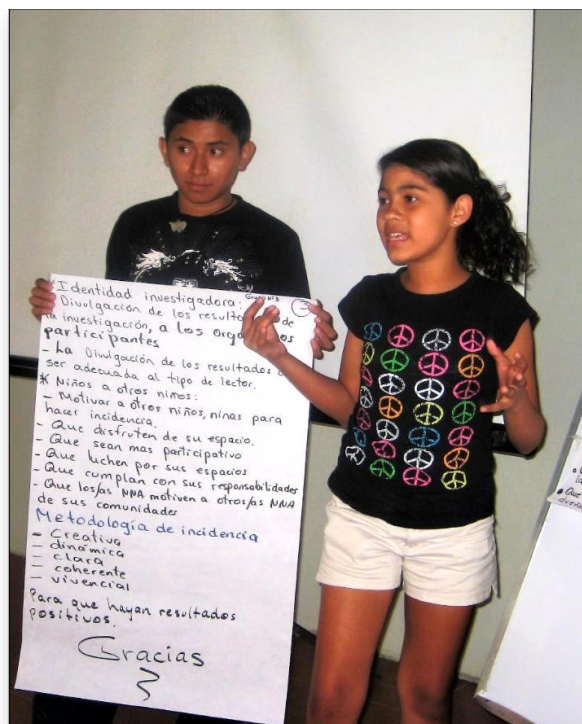 Identidad investigadora:
Grupo Nº3
Divulgación de los de
la investigación, a los
participantes
- La Divulgación de los resultados
ser adecuada al tipo de lector.
* Niños a otros niños:
- Motivar a otros niños, ninas para
hacer incidencia.
- Que disfruten de su espacio.
- Que sean mas participativo
- Que luchen por sus espacios
- Que cumplan con sus responsabilidades
- Que los/as NNA motiven a otros/as NNA
de sus comunidades
Metodología de incidencia
- Creativa
- dinámica
- clara
- coherente
- vivencial
Para que hayan resultados
positivos.
Gracias